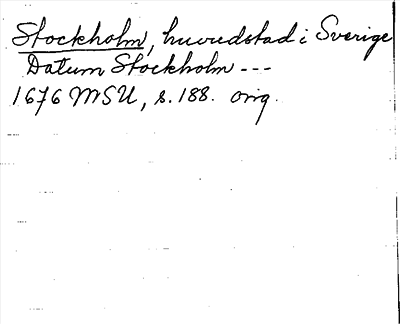 Stockholm, huvudstad i Sverige
Datum Stockholm ---
1676 MSU, s. 188. orig.